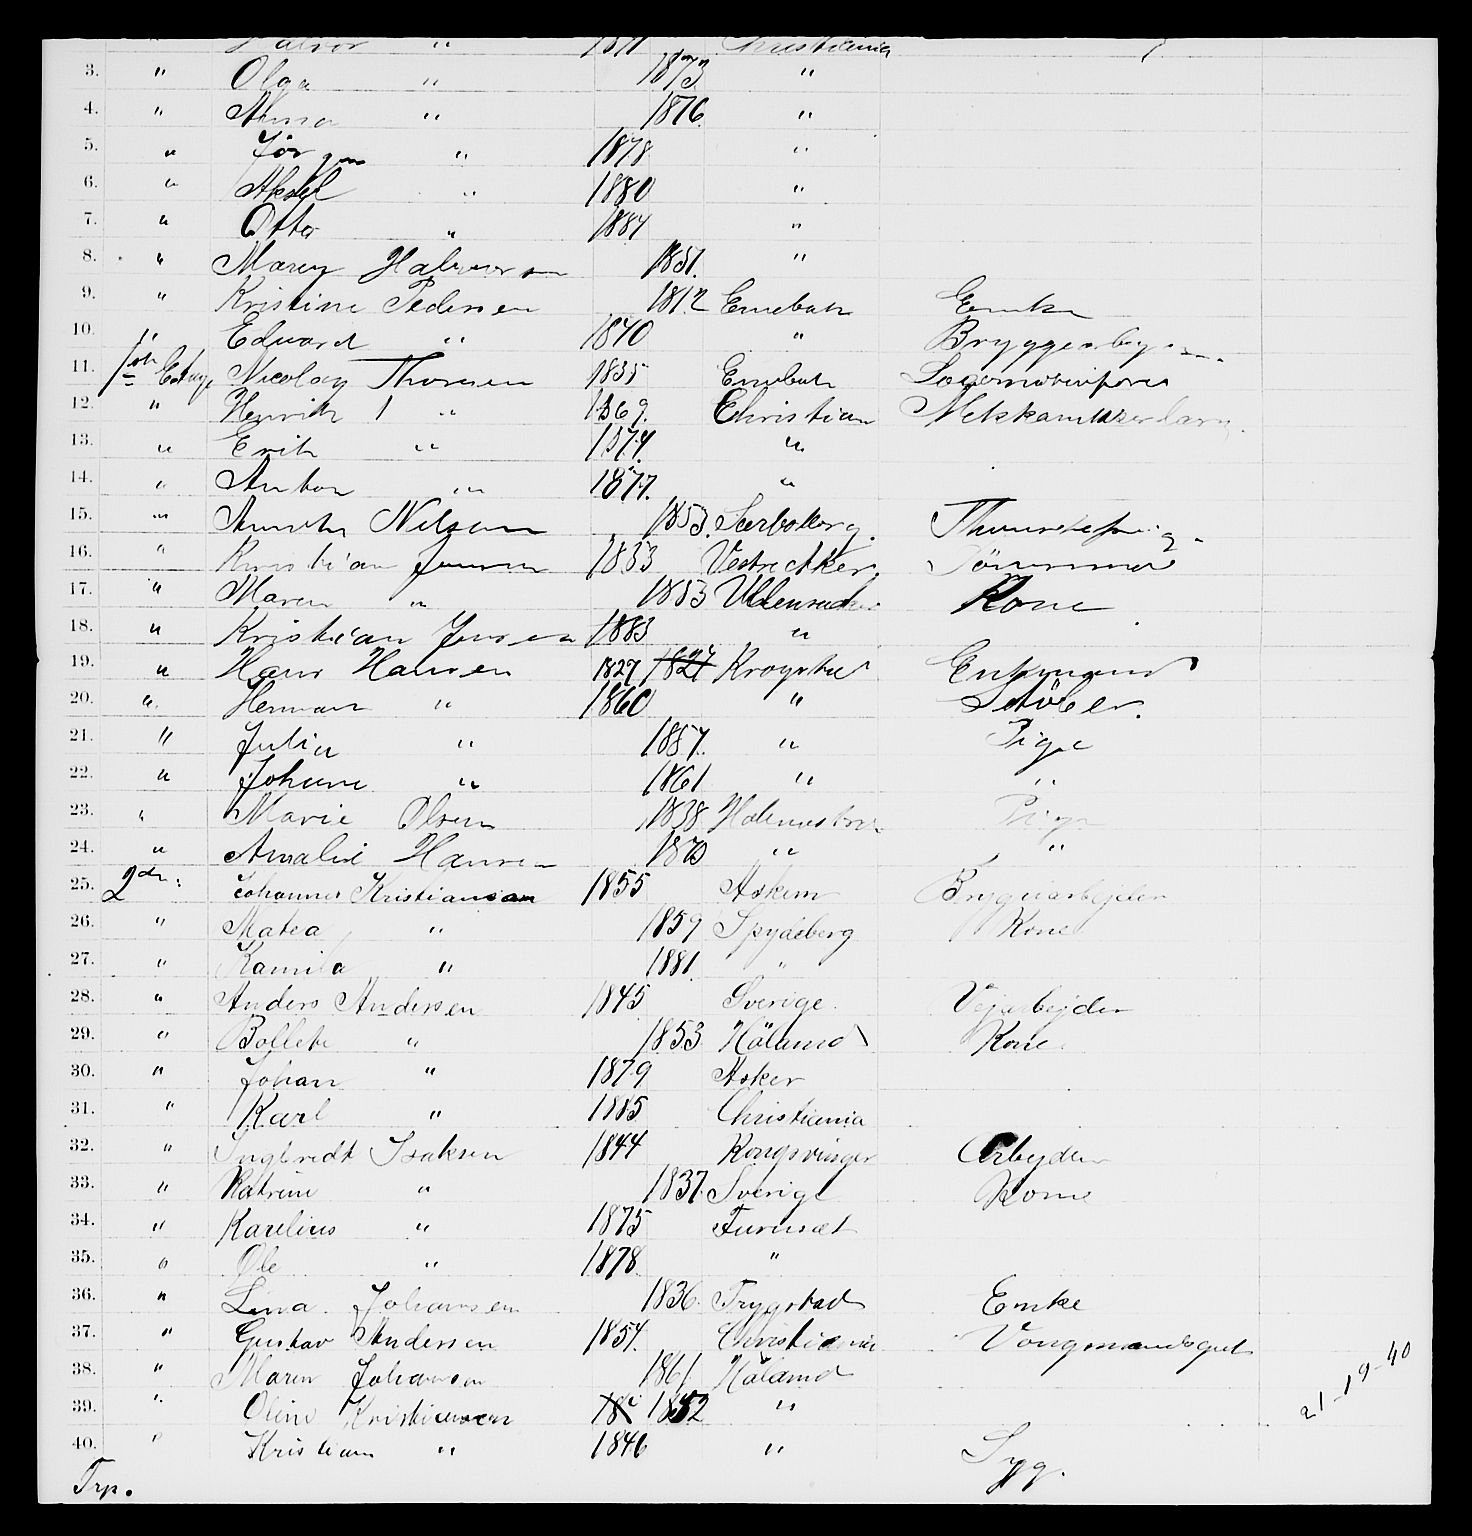 Halvor " 1871 Christiania
3. " Olga " 1873 "
4. " Anna " 1876 "
5. " Jørgen " 1878 "
6. " Aksel " 1880 "
7. " Otto " 1884 "
8. " Maren Halvorsen 1851. "
9. " Kristine Pedersen 1812 Enebak Enke
10. " Edvard " 1840 " Bryggearbej
11. 1ste Etage Nicolay Thoresen 1835 Enebak Locomotivfører
12. " Henrik " 1869. Christian
13. " Erik " 1874. "
14. " Anton " 1877. "
15. " Nilsen 1853. Sarpsborg
16. " Kristian Jensen 1853 Vestre Aker Tømmermd
17. " Maren " 1853 Ullensaker Kone
18. " Kristian Jensen 1883 "
19. " Hans Hansen 1827 1827 Krogstad Enkemand
20. " Herman " 1860 " Støber.
21. " Julia " 1857. " Pige
22. " Johane " 1861 " "
23. " Marie Olsen 1838 Holmestran Pige
24. " Amalie Hansen 1870 " "
25. 2den: Johannes Kristiansen 1855 Askim Bryggearbejder
26. " Matea " 1859 Spydeberg Kone
27. " Kamila " 1881. "
28. " Anders Andersen 1845 Sverige. Vejarbejder
29. " Bollete " 1853 Höland Kone.
30. " Johan " 1879 Asker
31. " Karl " 1885 Christiania
32. " Ingbredt Isaksen 1844 Kongsvinger Arbejder
33. " Katrine " 1837. Sverige Kone
34. " Karelius " 1875 Furuset
35. " Ole " 1878 "
36. " Lina. Johansen 1836. Trygstad Enke
37. " Gustav Andersen 1854. Christiania Vongmandsgut
38. " Maren Johansen 1861 Höland
39. " Oline Kristiansen 1852 "
40. " Kristian " 1846 " Syg.
Trp.
21-19-40